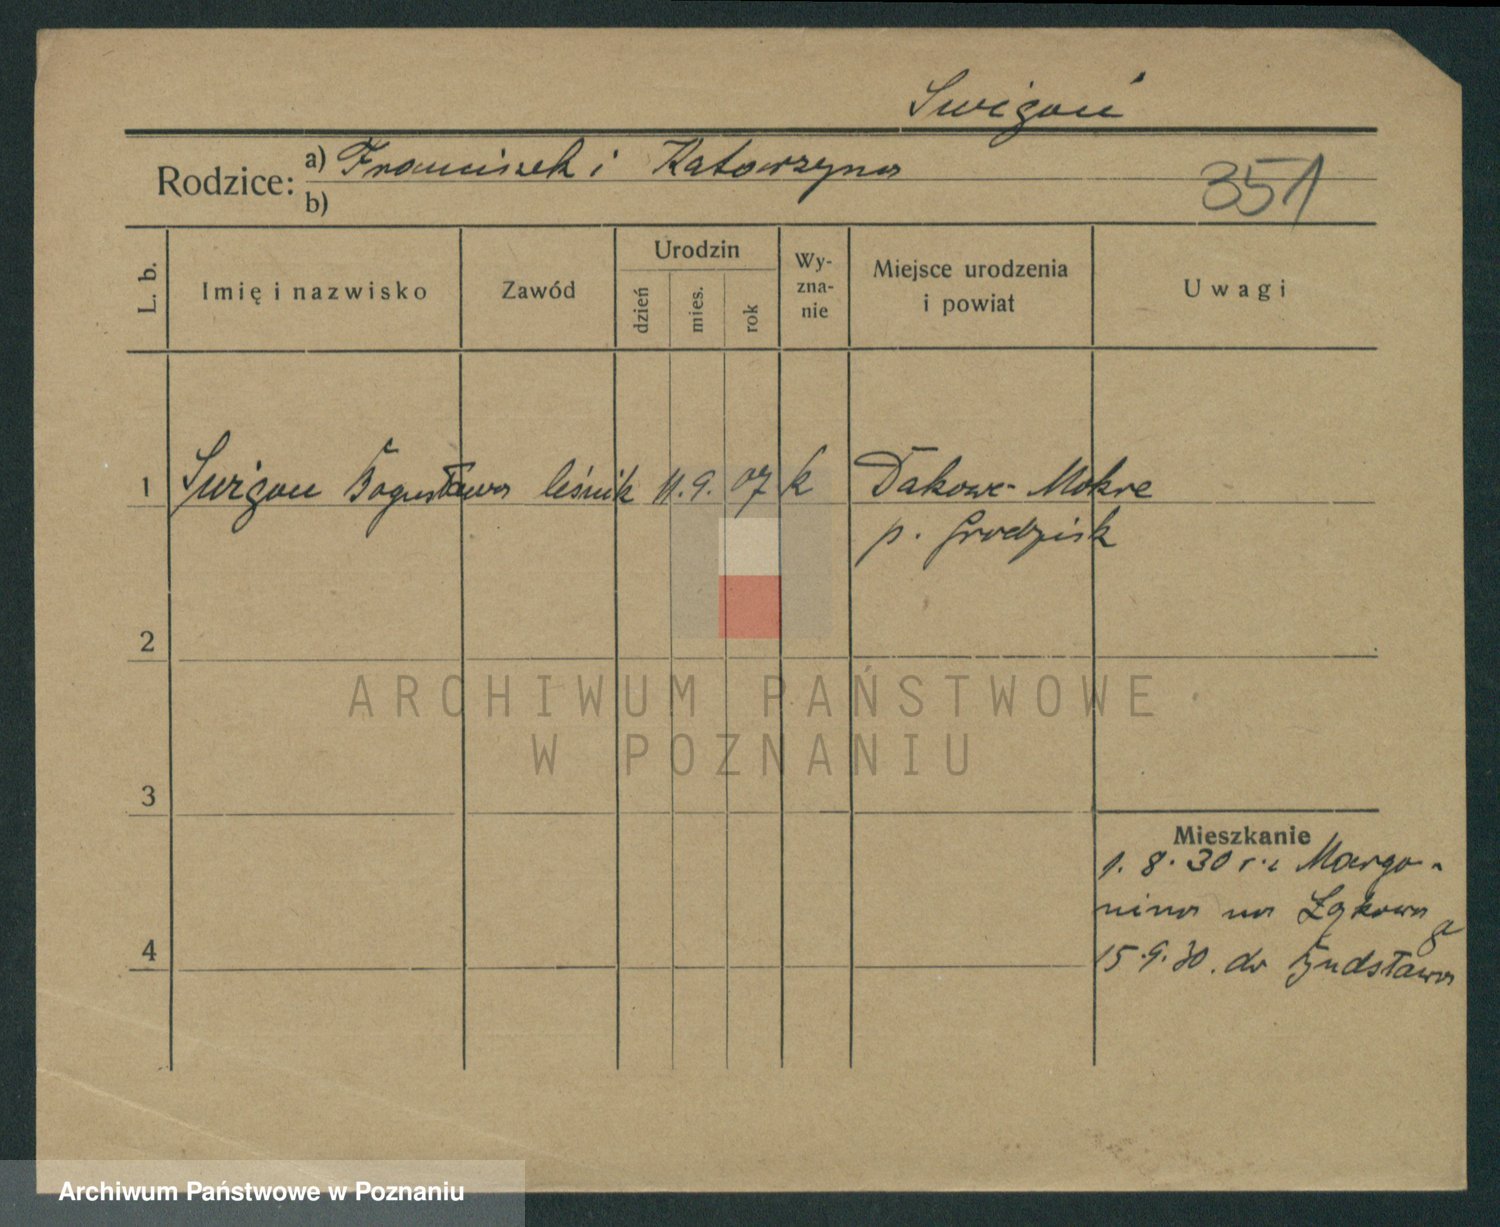 Swigoń
Rodzice: a) Franciszek i Katarzyna
b)
351
L. b.
Imię i nazwisko
Zawód
Urodzin
dzień
mies.
rok
Wy-
zna-
nie
Miejsce urodzenia
i powiat
Uwagi
1 Swigoń Bogusława leśnik 11. 9. 07 k Dakowe-Mokre
p. Grodzisk
2
3
4
Mieszkanie
1. 8. 30 r. z Margo-
nina na Łąkową
15. 9. 30. do
ARCHIWUM PAŃSTWOWE
W POZNANIU
Archiwum Państwowe w Poznaniu